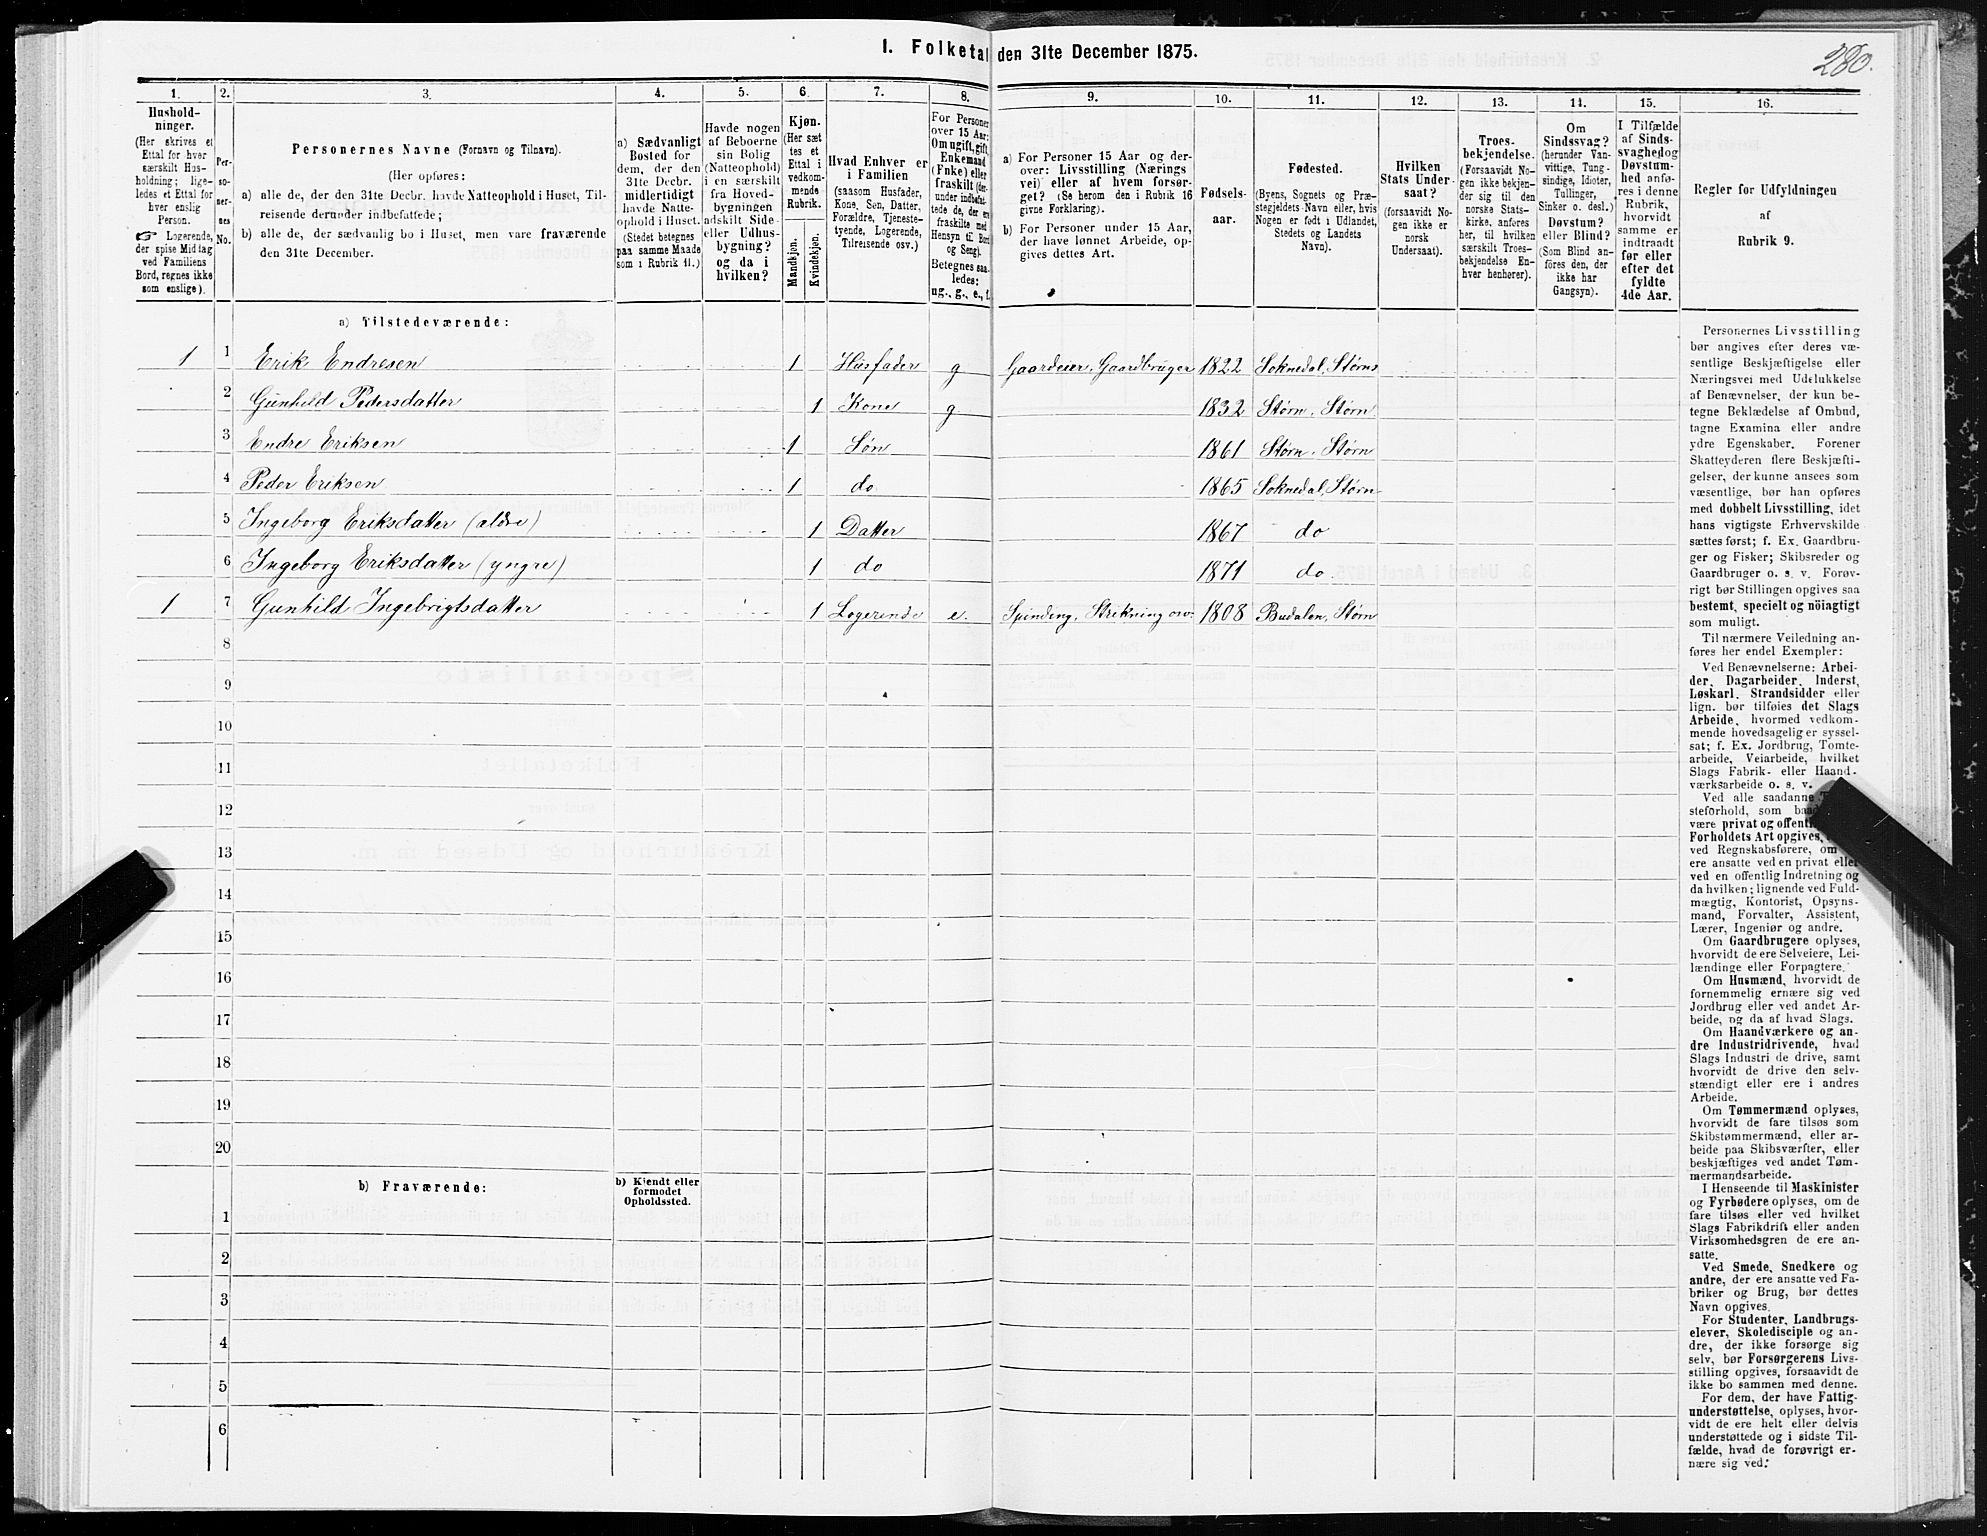 280.
I. Folketal den 31te December 1875.
1. 2. 3. 4. 5. 6. 7. 8. 9. 10. 11. 12. 13. 14. 15. 16.
Hushold-
ninger.
(Her skrives et
Ettal for hver
særskilt Hus-
holdning; lige-
ledes et Ettal for
hver enslig
Person.
☞ Logerende,
der spise Middag
ved Familiens
Bord, regnes ikke
som enslige).
Per-
so-
ner-
nes
No.
Personernes Navne (Fornavn og Tilnavn).
(Her opføres:
a) alle de, der den 31te Decbr. havde Natteophold i Huset, Til-
reisende derunder indbefattede;
b) alle de, der sædvanlig bo i Huset, men vare fraværende
den 31te December.
a) Sædvanligt
Bosted for
dem, der den
31te Decbr.
midlertidigt
havde Natte-
ophold i Huset.
(Stedet betegnes
paa samme Maade
som i Rubrik 11.)
Havde nogen
af Beboerne
sin Bolig
(Natteophold)
i en særskilt
fra Hoved-
bygningen
adskilt Side-
eller Udhus-
bygning?
og da i
hvilken?
Kjøn.
(Her sæt-
tes et
Ettal i
vedkom-
mende
Rubrik.
Mandkjøn.
Kvindekjøn.
Hvad Enhver er
i Familien
(saasom Husfader,
Kone, Søn, Datter,
Forældre, Tjeneste-
tyende, Logerende,
Tilreisende osv.)
For Personer
over 15 Aar:
Om ugift, gift,
Enkemand
(Enke) eller
fraskilt (der-
under indbefat-
tede de, der ere
fraskilte med
Hensyn til Bord
og Seng).
Betegnes saa-
ledes:
ug., g., e., f.
a) For Personer 15 Aar og der-
over: Livsstilling (Nærings
vei) eller af hvem forsør-
get? (Se herom den i Rubrik 16
givne Forklaring).
b) For Personer under 15 Aar,
der have lønnet Arbeide, op-
gives dettes Art.
Fødsels-
aar.
Fødested.
(Byens, Sognets og Præ-
stegjeldets Navn eller, hvis
Nogen er født i Udlandet,
Stedets og Landets
Navn).
Hvilken
Stats Under-
saat?
(forsaavidt No-
gen ikke er
norsk
Undersaat).
Troes-
bekjendelse.
(Forsaavidt No-
gen ikke bekjen-
der sig til den
norske Stats-
kirke, anføres
her, til hvilken
særskilt Troes-
bekjendelse En-
hver henhører).
Om
Sindssvag?
(herunder Van-
vittige, Tung-
sindige, Idioter,
Tullinger,
Sinker o. desl.)
Døvstum?
eller Blind?
(Som Blind an-
føres den, der
ikke har
Gangsyn).
I Tilfælde
af Sinds-
svaghed og
Døvstum-
hed anfø-
res i denne
Rubrik,
hvorvidt
samme er
indtraadt
før eller
efter det
fyldte
4de Aar.
Regler for Udfyldningen
af
Rubrik 9.
a) Tilstedeværende:
1 1 Erik Endresen 1 Husfader g Gaardeier, Gaardbruger 1822 Soknedal, Størns
2 Gunhild Pedersdatter 1 Kone g 1832 Størn, Størn
3 Endre Eriksen 1 Søn 1861 Størn, Størn
4 Peder Eriksen 1 do 1865 Soknedal, Størn
5 Ingeborg Eriksdatter (ældre) 1 Datter 1867 do
6 Ingeborg Eriksdatter (yngre) 1 do 1871 do
1 7 Gunhild Ingebrigtsdatter 1 Logerende e. Spinding, Strikning osv. 1808 Budalen, Størn
8
9
10
11
12
13
14
15
16
17
18
19
20
b) Fraværende:
b) Kjendt eller
formodet
Opholdssted.
1
2
3
4
5
6
Personernes Livsstilling
bør angives efter deres væ-
sentlige Beskjæftigelse eller
Næringsvei med Udelukkelse
af Benævnelser, der kun be-
tegne Beklædelse af Ombud,
tagne Examina eller andre
ydre Egenskaber. Forener
Skatteyderen flere Beskjæfti-
gelser, der kunne ansees som
væsentlige, bør han opføres
med dobbelt Livsstilling, idet
hans vigtigste Erhvervskilde
sættes først; f. Ex. Gaardbru-
ger og Fisker; Skibsreder og
Gaardbruger o. s. v. Forøv-
rigt bør Stillingen opgives saa
bestemt, specielt og nöiagtigt
som muligt.
Til nærmere Veiledning an-
føres her endel Exempler:
Ved Benævnelserne: Arbei-
der, Dagarbeider, Inderst,
Løskarl, Strandsidder eller
lign. bør tilføies det Slags
Arbeide, hvormed vedkom-
mende hovedsagelig er syssel-
sat; f. Ex. Jordbrug, Tomte-
arbeide, Veiarbeide, hvilket
Slags Fabrik- eller Haand-
værksarbeide o. s. v.
Ved alle saadanne
steforhold, som
være privat og
Forholdets Art opgives,
ved Regnskabsførere, om
ere ansatte ved en privat eller
ved en offentlig Indretning og
da hvilken; lignende ved Fuld-
mægtig, Kontorist, Opsyns-
mand, Forvalter, Assistent,
Lærer, Ingeniør og andre.
Om Gaardbrugere oplyses,
hvorvidt de ere Selveiere, Lei-
lændinge eller Forpagtere.
Om Husmænd, hvorvidt de
fornemmelig ernære sig ved
Jordbrug eller ved andet Ar-
beide, og da af hvad Slags.
Om Haandværkere og an-
dre Industridrivende, hvad
Slags Industri de drive, samt
hvorvidt de drive den selv-
stændigt eller ere i andres
Arbeide.
Om Tømmermænd oplyses,
hvorvidt de fare tilsøs som
Skibstømmermænd, eller ar-
beide paa Skibsværfter, eller
beskjæftiges ved andet Tøm-
mermandsarbeide.
I Henseende til Maskinister
og Fyrbødere oplyses, om de
fare tilsøs eller ved hvilket
Slags Fabrikdrift eller anden
Virksomhedsgren de ere an-
satte.
Ved Smede, Snedkere og
andre, der ere ansatte ved Fa-
briker og Brug, bør dettes
Navn opgives.
For Studenter, Landbrugs-
elever, Skoledisciple og an-
dre, der ikke forsørge sig
selv, bør Forsørgerens Livs-
stilling opgives, forsaavidt de
ikke bo sammen med denne.
For dem, der have Fattig-
understøttelse, oplyses, hvor-
vidt de ere helt eller delvis
understøttede og i sidste Til-
fælde, hvad de forøvrigt er-
nære sig ved.